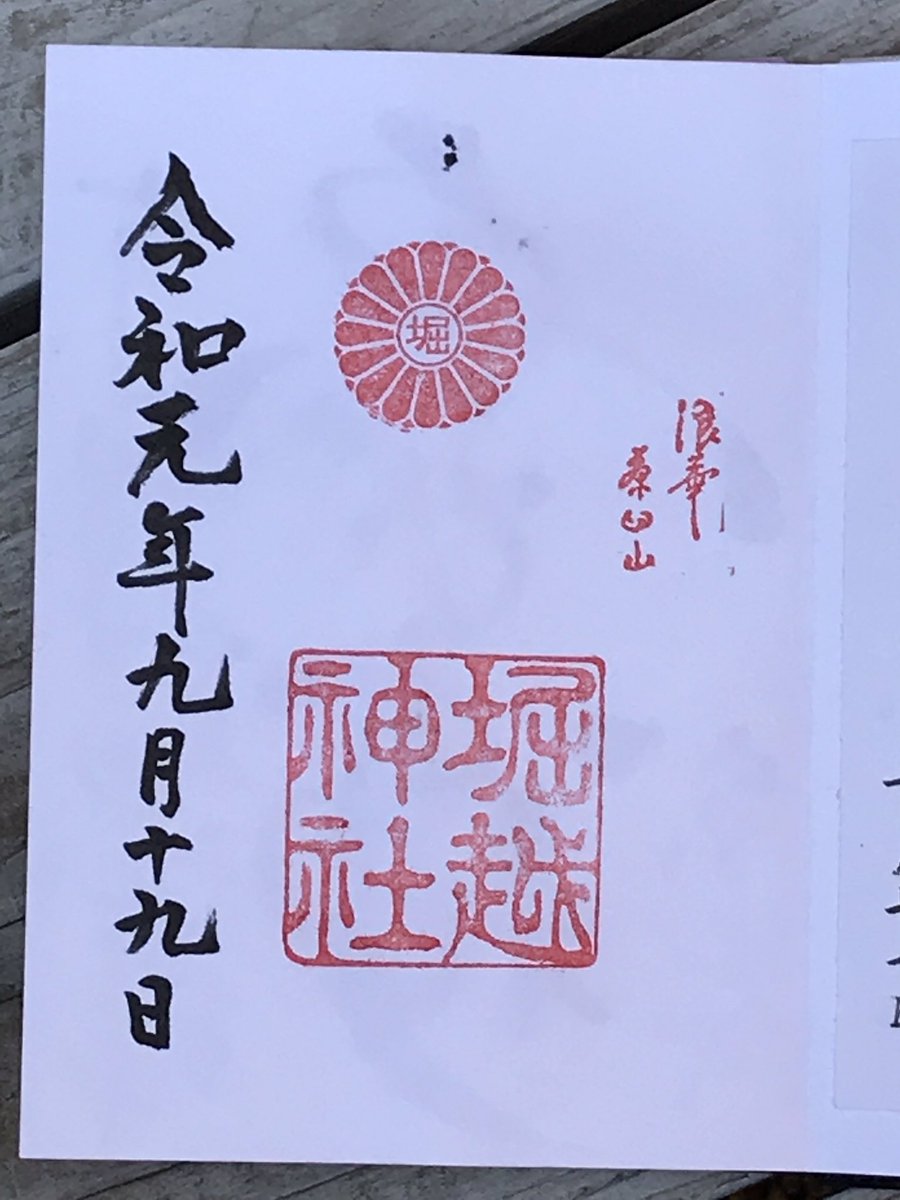 浪華
茶臼山
堀
堀越
神社
令和元年九月十九日